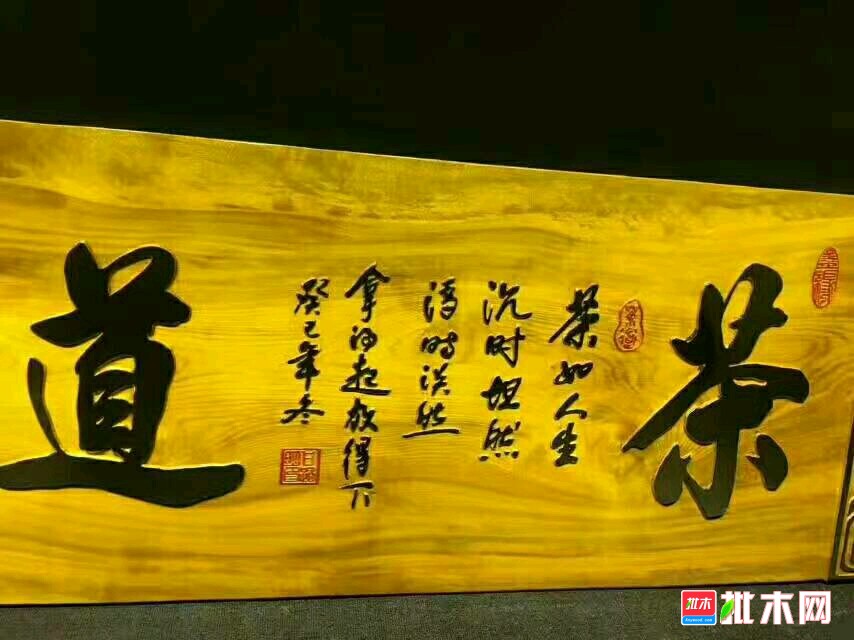 茶
茶如人生
沉时坦然
浮時淡然
拿得起放得下
癸巳年冬
道
批木
批木网